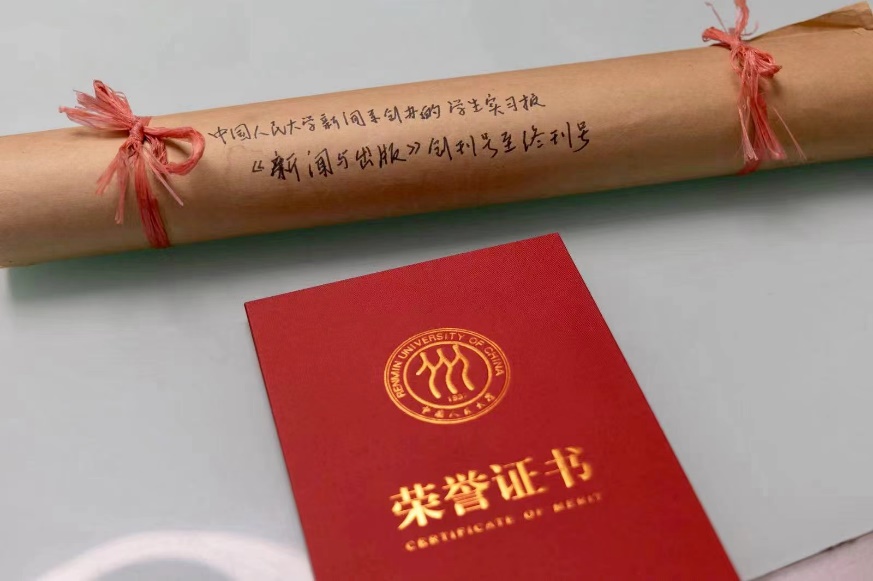 中国人民大学新闻系创办的学生实习报
《新闻与出版》创刊号至终刊号
RENMIN UNIVERSITY OF CHINA
1937
中国人民大学
荣誉证书
CERTIFICATE OF MERIT